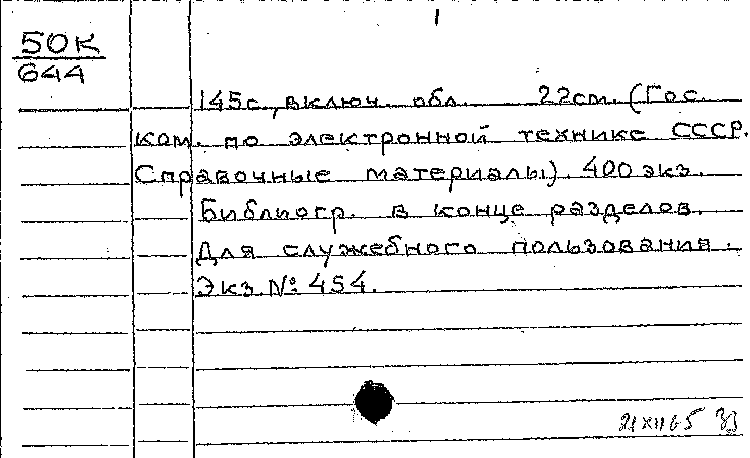 1
50К
644
145с., включ. обл. 22см. (Гос.
ком. по электронной технике СССР.
Справочные материалы). 400 экз.
Библиогр. в конце разделов.
Для служебного пользования.
Экз. № 454.